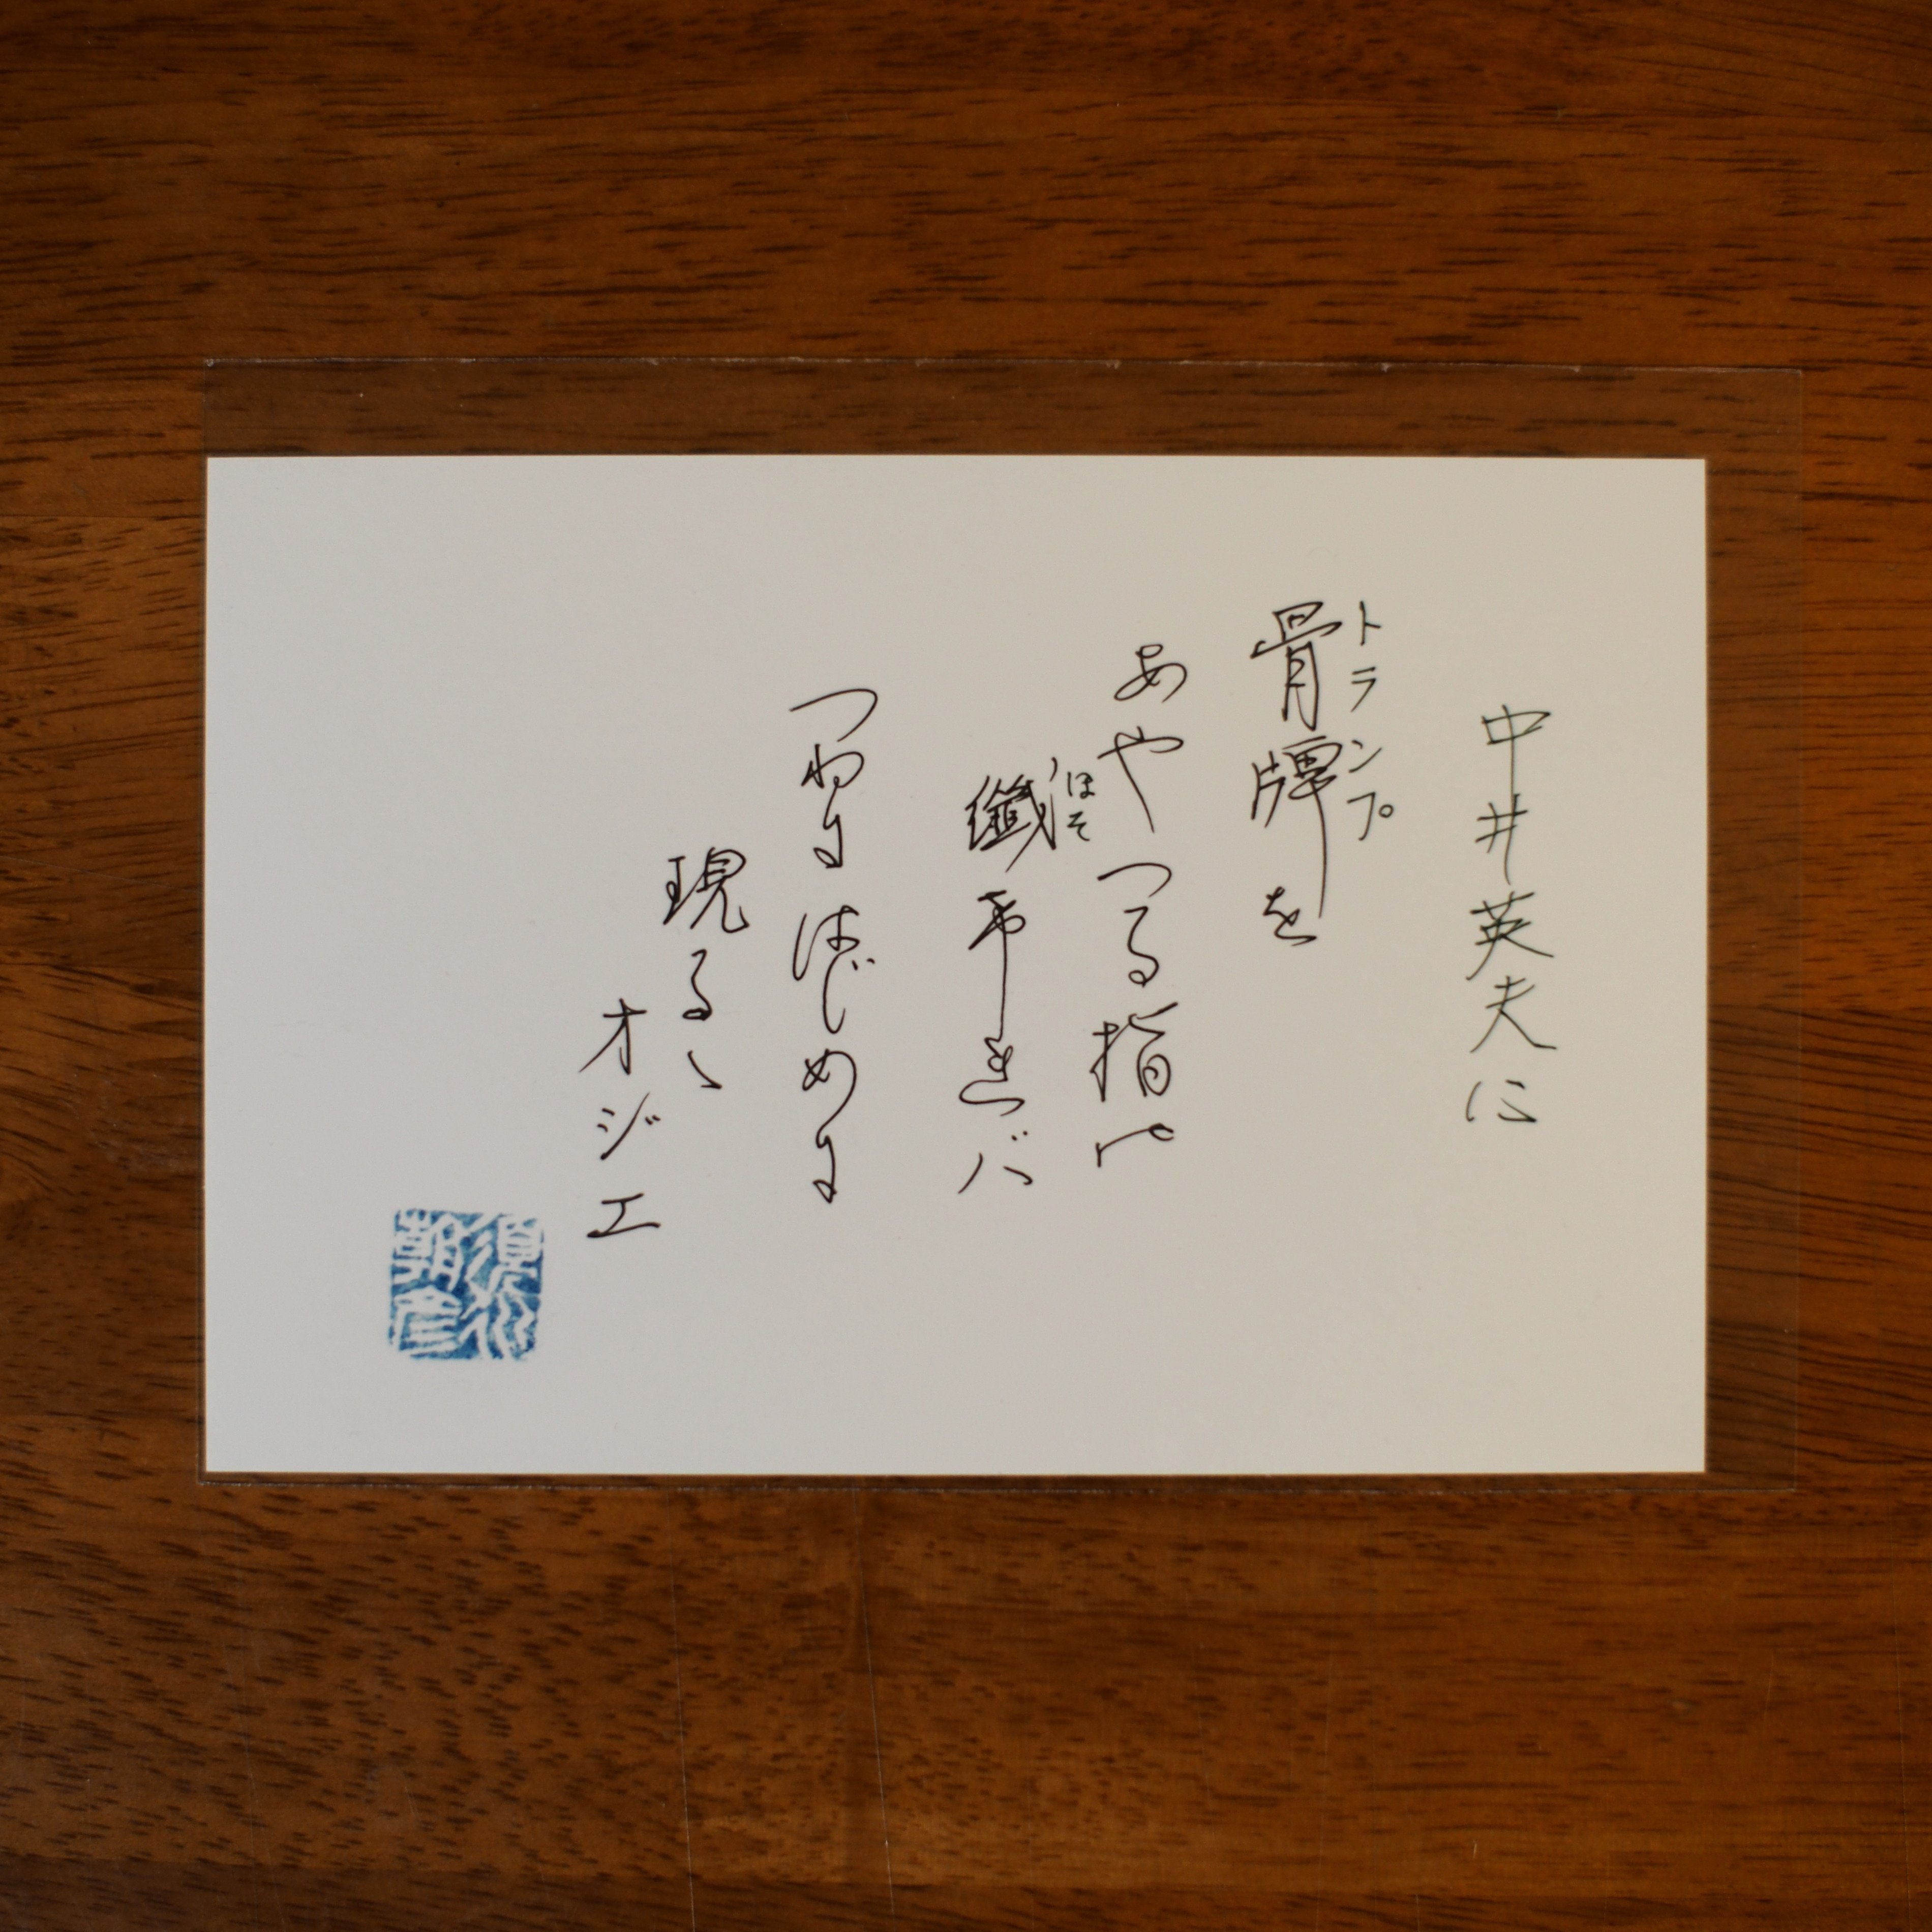 中井英夫に
トランプ
骨牌を
あやつる指の
ほそ
纖ければ
つねにはじめに
現るゝ
オジエ
須永朝彦